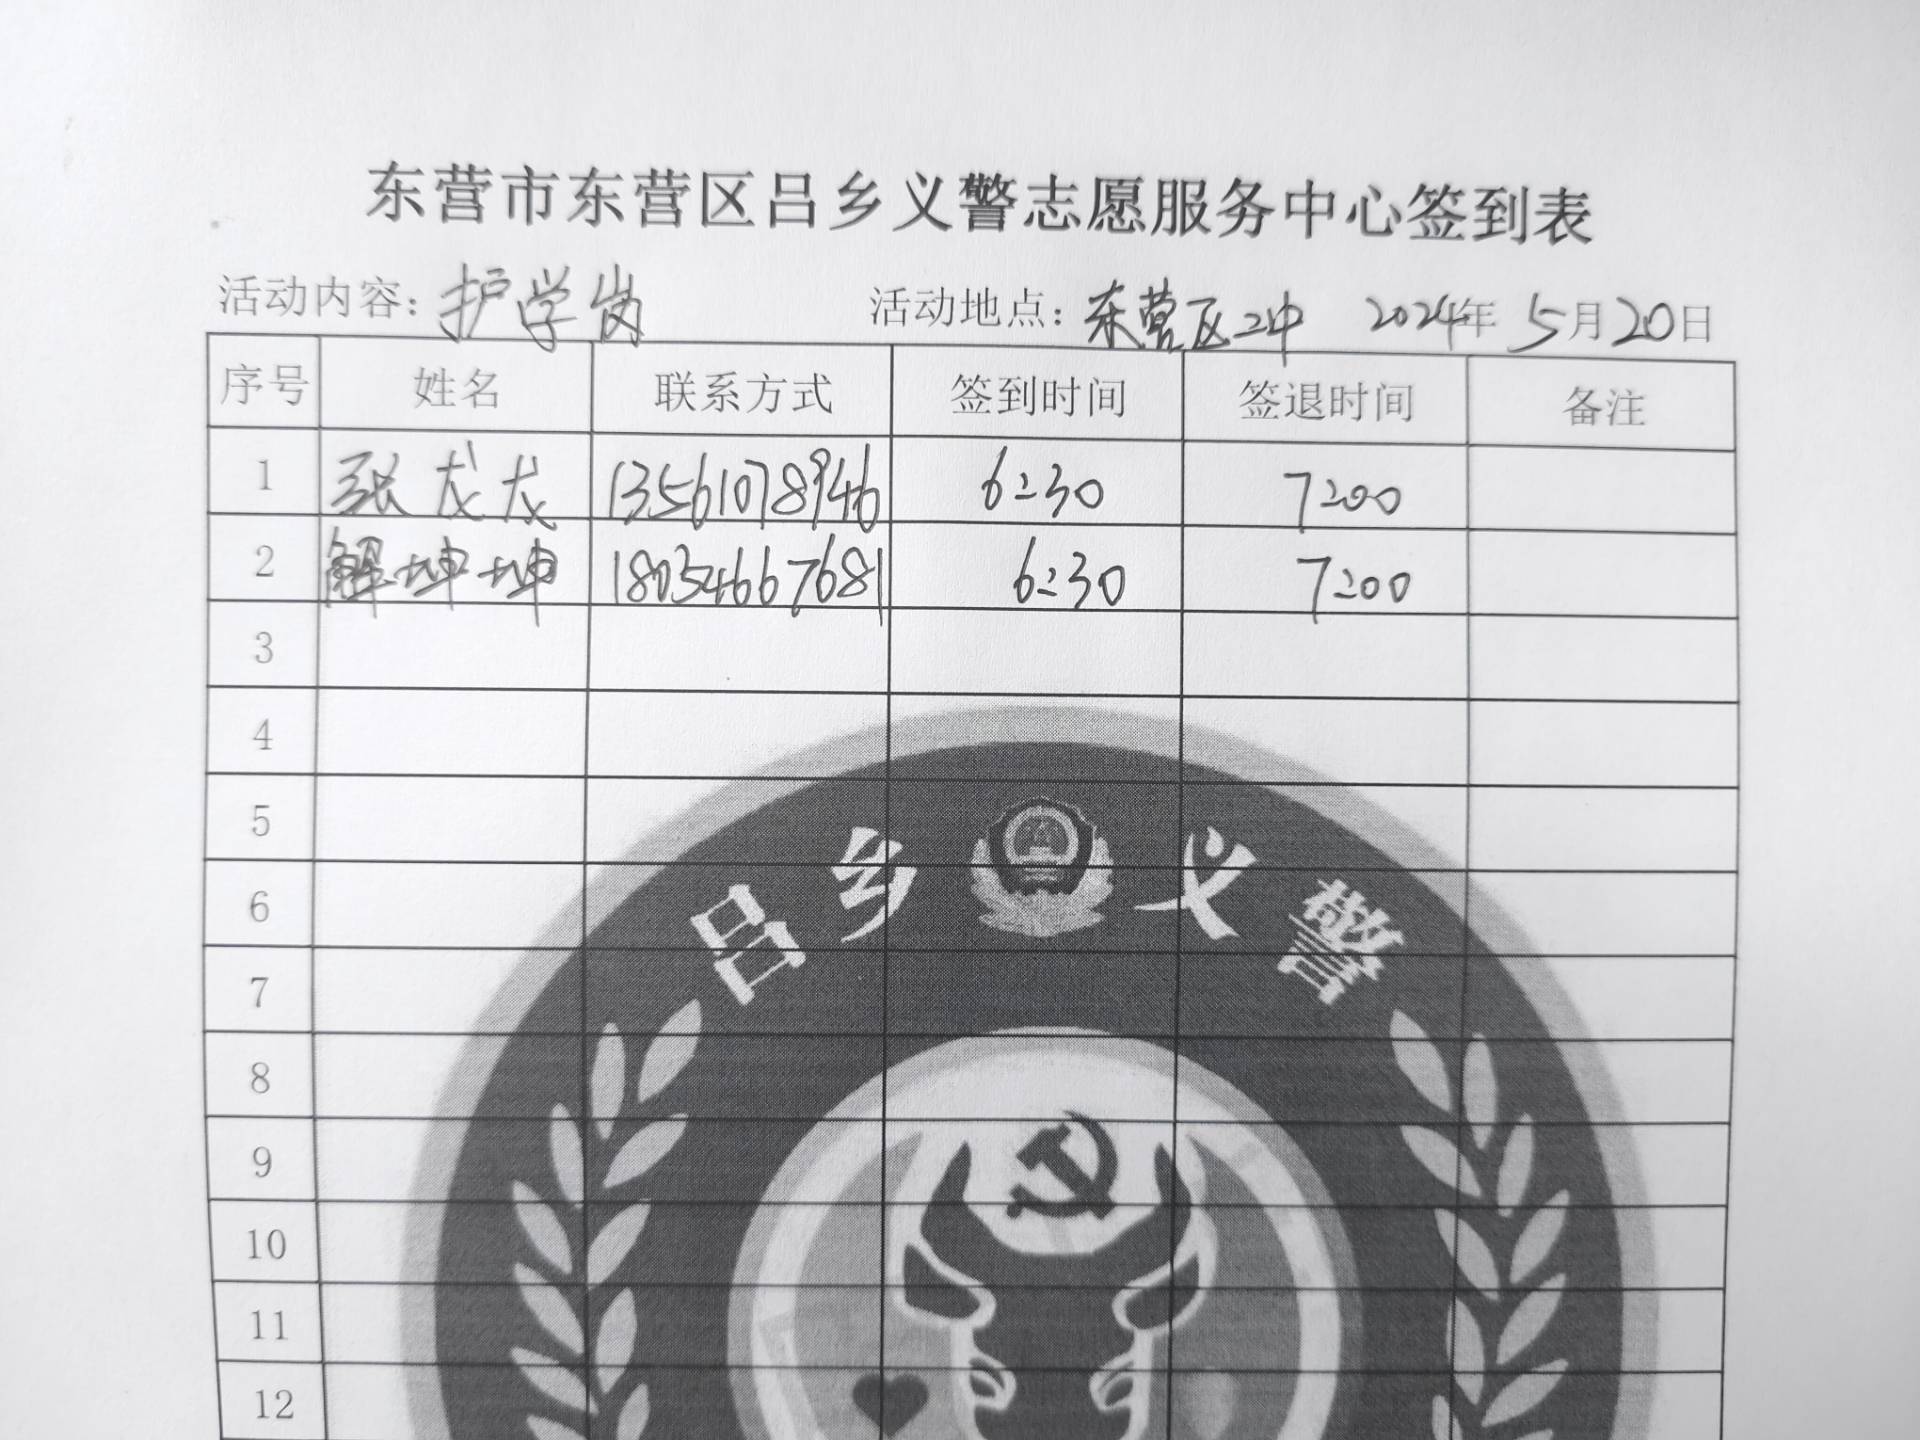 东营市东营区吕乡义警志愿服务中心签到表
活动内容：护学岗 活动地点：东营区二中 2024年 5月20日
序号 姓名 联系方式 签到时间 签退时间 备注
1 张龙龙 13561078946 6:30 7:00
2 解坤坤 18034667681 6:30 7:00
3
4
5
6
7
8
9
10
11
12
吕乡义警